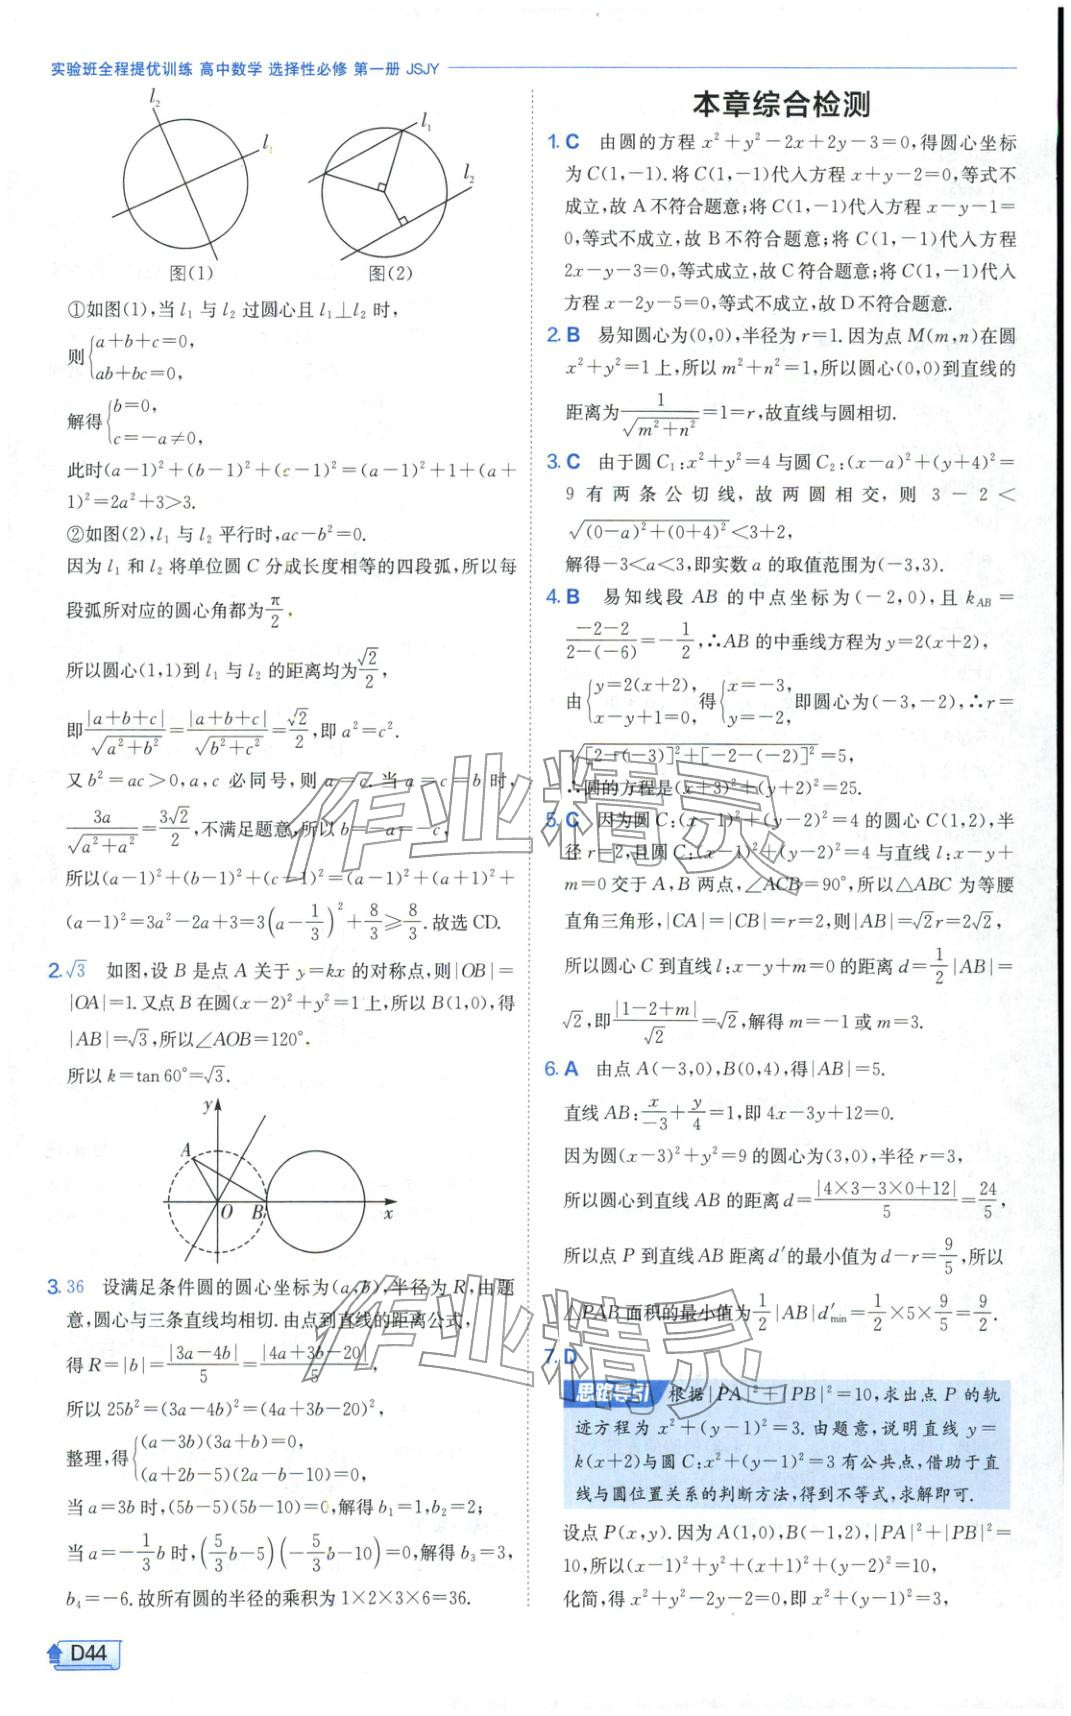 实验班全程提优训练 高中数学 选择性必修 第一册 JSJY
l₂
l₁
l₁
l₂
图(1)
图(2)
①如图(1),当 l₁ 与 l₂ 过圆心且 l₁⊥l₂ 时,
则{a+b+c=0,
ab+bc=0,
解得{b=0,
c=-a≠0,
此时(a-1)²+(b-1)²+(c-1)²=(a-1)²+1+(a+
1)²=2a²+3>3.
②如图(2),l₁ 与 l₂ 平行时,ac-b²=0.
因为 l₁ 和 l₂ 将单位圆 C 分成长度相等的四段弧,所以每
段弧所对应的圆心角都为π/2,
所以圆心(1,1)到 l₁ 与 l₂ 的距离均为√2/2,
即|a+b+c|/√(a²+b²)=|a+b+c|/√(b²+c²)=√2/2,即 a²=c².
又 b²=ac>0,a,c 必同号,则 a=c.当 a=c=b 时,
3a/√(a²+a²)=3√2/2,不满足题意,所以 b=-a=-c,
所以(a-1)²+(b-1)²+(c-1)²=(a-1)²+(a+1)²+
(a-1)²=3a²-2a+3=3(a-1/3)²+8/3≥8/3.故选CD.
2.√3 如图,设 B 是点 A 关于 y=kx 的对称点,则|OB|=
|OA|=1.又点 B 在圆(x-2)²+y²=1上,所以 B(1,0),得
|AB|=√3,所以∠AOB=120°.
所以 k=tan 60°=√3.
y
A
O
B
x
3.36 设满足条件圆的圆心坐标为(a,b),半径为 R,由题
意,圆心与三条直线均相切.由点到直线的距离公式,
得 R=|b|=|3a-4b|/5=|4a+3b-20|/5,
所以 25b²=(3a-4b)²=(4a+3b-20)²,
整理,得{(a-3b)(3a+b)=0,
(a+2b-5)(2a-b-10)=0,
当 a=3b 时,(5b-5)(5b-10)=0,解得 b₁=1,b₂=2;
当 a=-1/3b 时,(5/3b-5)(-5/3b-10)=0,解得 b₃=3,
b₄=-6.故所有圆的半径的乘积为 1×2×3×6=36.
D44
本章综合检测
1.C 由圆的方程 x²+y²-2x+2y-3=0,得圆心坐标
为 C(1,-1).将 C(1,-1)代入方程 x+y-2=0,等式不
成立,故 A 不符合题意;将 C(1,-1)代入方程 x-y-1=
0,等式不成立,故 B 不符合题意;将 C(1,-1)代入方程
2x-y-3=0,等式成立,故 C 符合题意;将 C(1,-1)代入
方程 x-2y-5=0,等式不成立,故 D 不符合题意.
2.B 易知圆心为(0,0),半径为 r=1.因为点 M(m,n)在圆
x²+y²=1上,所以 m²+n²=1,所以圆心(0,0)到直线的
距离为1/√(m²+n²)=1=r,故直线与圆相切.
3.C 由于圆 C₁:x²+y²=4 与圆 C₂:(x-a)²+(y+4)²=
9 有两条公切线,故两圆相交,则 3-2<
√((0-a)²+(0+4)²)<3+2,
解得-3<a<3,即实数 a 的取值范围为(-3,3).
4.B 易知线段 AB 的中点坐标为(-2,0),且 k_AB=
(-2-2)/(2-(-6))=-1/2,∴AB 的中垂线方程为 y=2(x+2),
由{y=2(x+2), x-y+1=0,得{x=-3, y=-2,即圆心为(-3,-2),∴r=
√([2-(-3)]²+[-2-(-2)]²)=5,
∴圆的方程是(x+3)²+(y+2)²=25.
5.C 因为圆 C:(x-1)²+(y-2)²=4 的圆心 C(1,2),半
径 r=2,且圆 C:(x-1)²+(y-2)²=4 与直线 l:x-y+
m=0 交于 A,B 两点,∠ACB=90°,所以△ABC 为等腰
直角三角形,|CA|=|CB|=r=2,则|AB|=√2r=2√2,
所以圆心 C 到直线 l:x-y+m=0 的距离 d=1/2|AB|=
√2,即|1-2+m|/√2=√2,解得 m=-1 或 m=3.
6.A 由点 A(-3,0),B(0,4),得|AB|=5.
直线 AB:x/-3+y/4=1,即 4x-3y+12=0.
因为圆(x-3)²+y²=9 的圆心为(3,0),半径 r=3,
所以圆心到直线 AB 的距离 d=|4×3-3×0+12|/5=24/5,
所以点 P 到直线 AB 距离 d′的最小值为 d-r=9/5,所以
△PAB 面积的最小值为1/2|AB|d′min=1/2×5×9/5=9/2.
7.D
思路导引 根据|PA|²+|PB|²=10,求出点 P 的轨
迹方程为 x²+(y-1)²=3.由题意,说明直线 y=
k(x+2)与圆 C:x²+(y-1)²=3 有公共点,借助于直
线与圆位置关系的判断方法,得到不等式,求解即可.
设点 P(x,y).因为 A(1,0),B(-1,2),|PA|²+|PB|²=
10,所以(x-1)²+y²+(x+1)²+(y-2)²=10,
化简,得 x²+y²-2y-2=0,即 x²+(y-1)²=3,
作业精灵
作业精灵